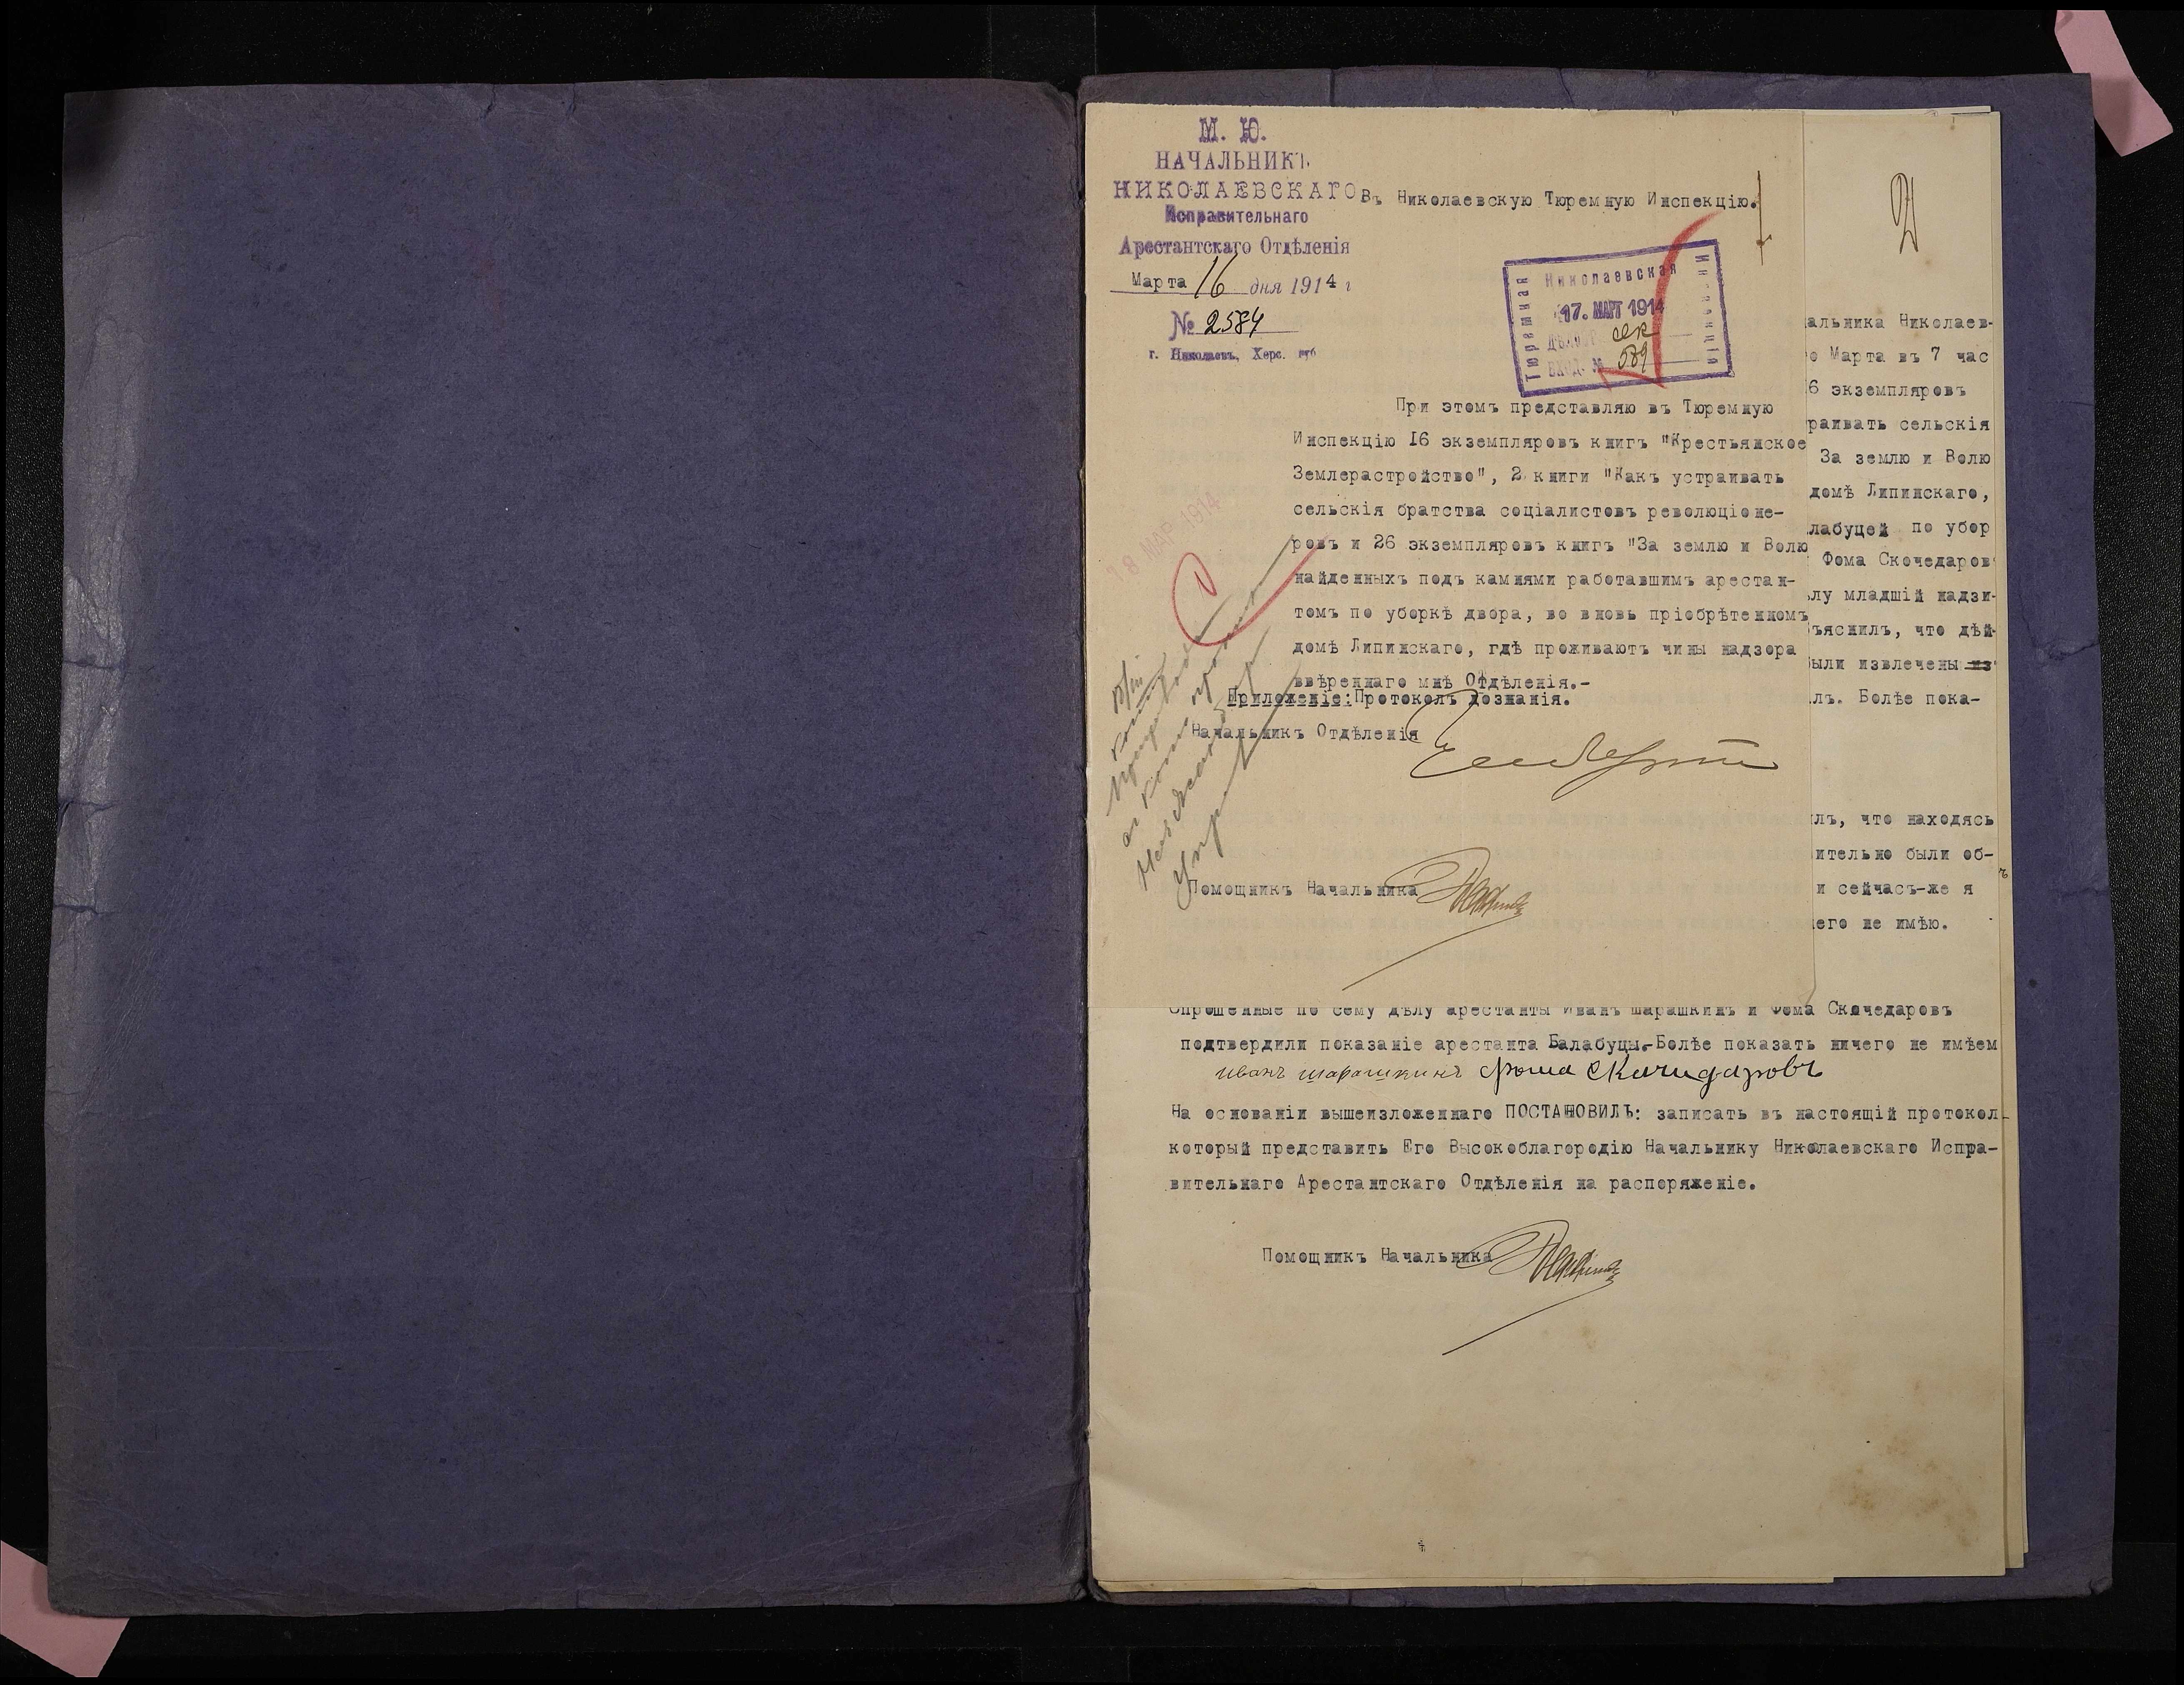 М. Ю.
НАЧАЛЬНИКЪ
НИКОЛАЕВСКАГО
Исправительнаго
Арестантскаго Отдѣленія
Марта 16 дня 1914 г
№ 2584
г. Николаевъ, Херс. губ
Въ Николаевскую Тюремную Инспекцію.
1
Тюремная Николаевская Инспекція
17. МАРТ 1914
ВХОД. № 589
При этомъ представляю въ Тюремную
Инспекцію I6 экземпляровъ книгъ "Крестьянское
Землерастройство", 2 книги "Какъ устраивать
сельскія братства соціалистовъ революціоне-
ровъ и 26 экземпляровъ книгъ "За землю и Волю
найденныхъ подъ камнями работавшимъ арестан-
томъ по уборкѣ двора, во вновь пріобрѣтенномъ
домѣ Липинскаго, гдѣ проживаютъ чины надзора
ввѣреннаго мнѣ Отдѣленія.-
Приложеніе: Протоколъ дознанія.
Начальникъ Отдѣленія
Помощникъ Начальника
18 МАР 1914
2
альника Николаев-
о Марта въ 7 час
6 экземпляровъ
раивать сельскія
За землю и Волю
домѣ Липинскаго,
лабуцей по убор
Фома Скочедаровъ
лу младшій надзи-
ъяснилъ, что дѣй-
были извлечены из
лъ. Болѣе пока-
лъ, что находясь
ительно были об-
и сейчасъ-же я
чего не имѣю.
Опрошенные по сему дѣлу арестанты Иванъ Шарашкинъ и Фома Скочедаровъ
подтвердили показаніе арестанта Балабуцы.-Болѣе показать ничего не имѣем
иванъ шарашкинъ фома скачидаровъ
На основаніи вышеизложеннаго ПОСТАНОВИЛЪ: записать въ настоящій протокол
который представить Его Высокоблагородію Начальнику Николаевскаго Испра-
вительнаго Арестантскаго Отдѣленія на распоряженіе.
Помощникъ Начальника